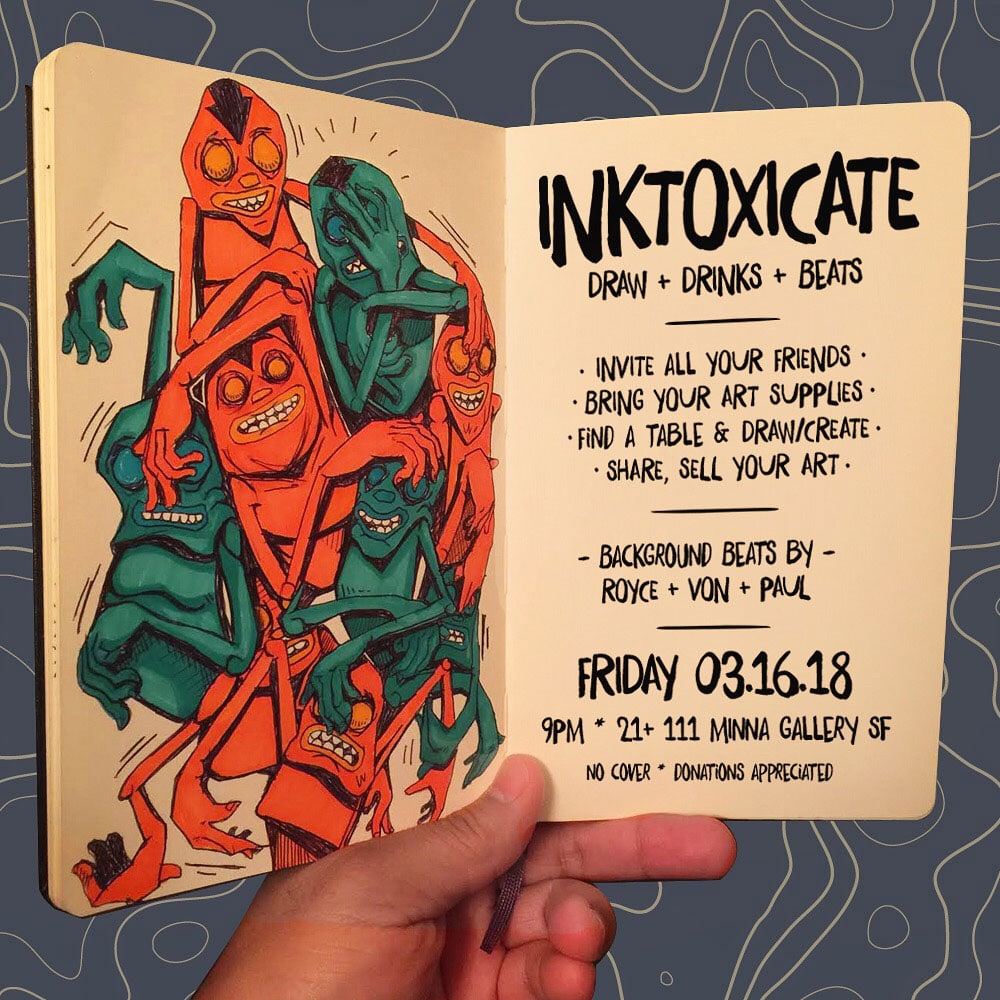 INKTOXICATE
DRAW + DRINKS + BEATS
· INVITE ALL YOUR FRIENDS ·
· BRING YOUR ART SUPPLIES ·
· FIND A TABLE & DRAW/CREATE ·
· SHARE, SELL YOUR ART ·
- BACKGROUND BEATS BY -
ROYCE + VON + PAUL
FRIDAY 03.16.18
9PM * 21+ 111 MINNA GALLERY SF
NO COVER * DONATIONS APPRECIATED